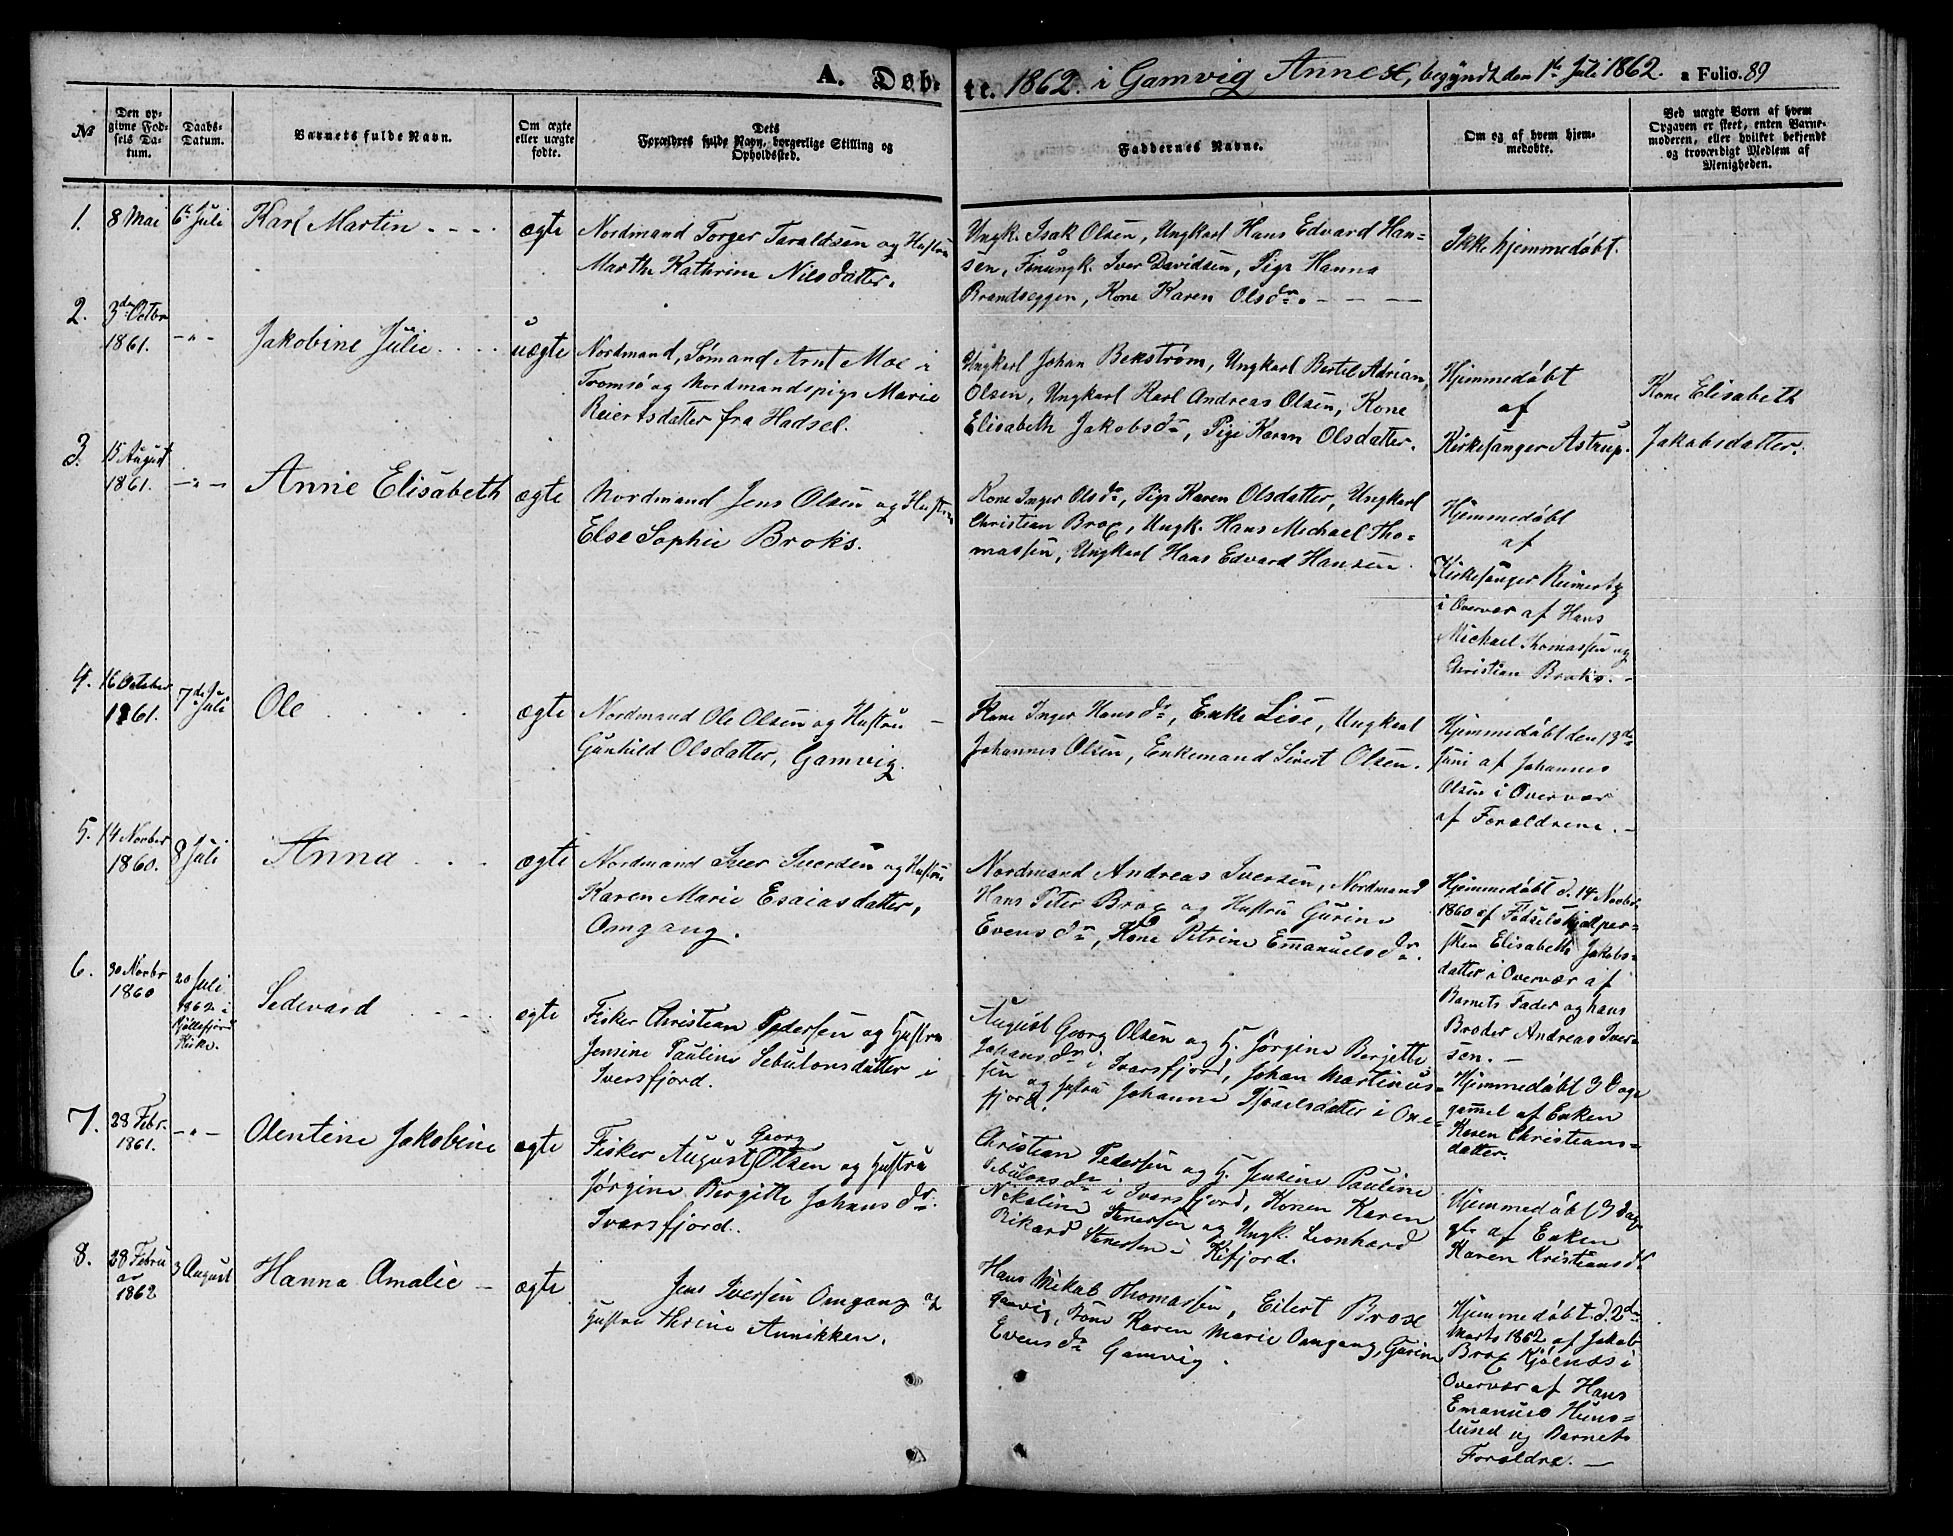 A. Døbte. 1862. i Gamvig Annex, begyndt den 1ste Juli 1862. a Folio. 89
№
Den opgivne Fødsels Datum.
Daabs-Datum.
Barnets fulde Navn.
Om ægte eller uægte fødte.
Dets Forældres fulde Navn, borgerlige Stilling og Opholdssted.
Faddernes Navne.
Om og af hvem hjemmedøbte.
Ved uægte Børn af hvem Opgaven er skeet, enten Barnemoderen, eller hvilket bekjendt og troværdigt Medlem af Menigheden.
1. 8 Mai 6t Juli Karl Martin ægte
Nordmand Torger Taraldsen og Hustru
Marthe Kathrine Nilsdatter.
Ungk. Isak Olsen, Ungkarl Hans Edvard Han=
sen, Finungk. Iver Davidsen, Pige Hanna
Brandseggen, Kone Karen Olsdr.
Ikke hjemmedøbt.
2. 3die Octbr
1861. -"- Jakobine Julie uægte
Nordmand, Sømand Arnt Moe i
Tromsø og Nordmandspige Marie
Reiertsdatter fra Hadsel.
Ungkarl Johan Bekstrøm, Ungkarl Bertel Adrian
Olsen, Ungkarl Karl Andreas Olsen, Kone
Elisabeth Jakobsdr, Pige Karen Olsdatter.
Hjemmedøbt
af
Kirkesanger Astrup.
Kone Elisabeth
Jakobsdatter.
3. 15 August
1861. -"- Anne Elisabeth ægte
Nordmand Jens Olsen og Hustru
Else Sophie Broks.
Kone Inger Olsdr, Pige Karen Olsdatter, Ungkarl
Christian Brox, Ungk. Hans Michael Tho=
massen, Ungkarl Hans Edvard Hansen
Hjemmedøbt
af
Kirkesanger
i Overvær af Hans
Michael Thomassen og
Christian Broks. -
4. 16 October
1861. 7de Juli Ole ægte
Nordmand Ole Olsen og Hustru -
Gunhild Olsdatter, Gamvig.
Kone Inger Hansdr, Enke Lise, Ungkarl
Johannes Olsen, Enkemand Sivert Olsen.
Hjemmedøbt den 13de
Juni af Johannes
Olsen i Overvær
af Forældrene. -
5. 14 Novber
1860. 8 Juli Anna ægte
Nordmand Iver Iversen og Hustru
Karen Marie Esaiasdatter,
Omgang.
Nordmand Andreas Iversen, Nordmand
Hans Peter Brox og Hustru Gurine
Evensdr, Kone Petrine Emanuelsdr.
Hjemmedøbt d. 14 Novbr.
1860 af Fødselshjælper=
sken Elisabeth Jakobs=
datter i Overvær af
Barnets Fader og hans
Broder Andreas Iver=
sen. -
6. 30 Novbr
1860
20 Juli
1862 i
Kjøllefjord
Kirke.
Sedevard ægte
Fisker Christian Pedersen og Hustru
Jensine Pauline Sebulonsdatter i
Iversfjord.
August Georg Olsen og H. Jørgine Bergitte
Johansdr i Ivarsfjord, Johan Martinus=
sen og Hustru Johanna datter i Oxe=
fjord.
Hjemmedøbt 3 Dage
gammel af Enken
Karen Christians=
datter.
7. 28 Febr.
1861. -"- Olentine Jakobine ægte
Fisker August Georg Olsen og Hustru
Jørgine Bergitte Johansdr.
Ivarsfjord.
Christian Pedersen og H. Jensine Pauline
Sebulonsdr i Ivarsfjord, Konen Karen
Nikoline Stenersen og Ungk. Leonhard
Rikard Stenersen i Kifjord.
Hjemmedøbt 3 Dage
gl. af Enken
Karen Kristiansdr
8. 28 Febru
ar
1862 3 August Hanna Amalie - ægte
Jens Iversen Omgang og
Hustru Thrine Annikken.
Hans Mikal Thomassen, Eilert Brox
Gamvig, Kone Karen Marie Omgang, Gurine
Evensdr Gamvig.
Hjemmedøbt d. 2den
Marts 1862 af Jakob
Brox Kjølnæs i
Overvær af Hans
Emanuel Huns=
lund og Barnets
Forældre. -